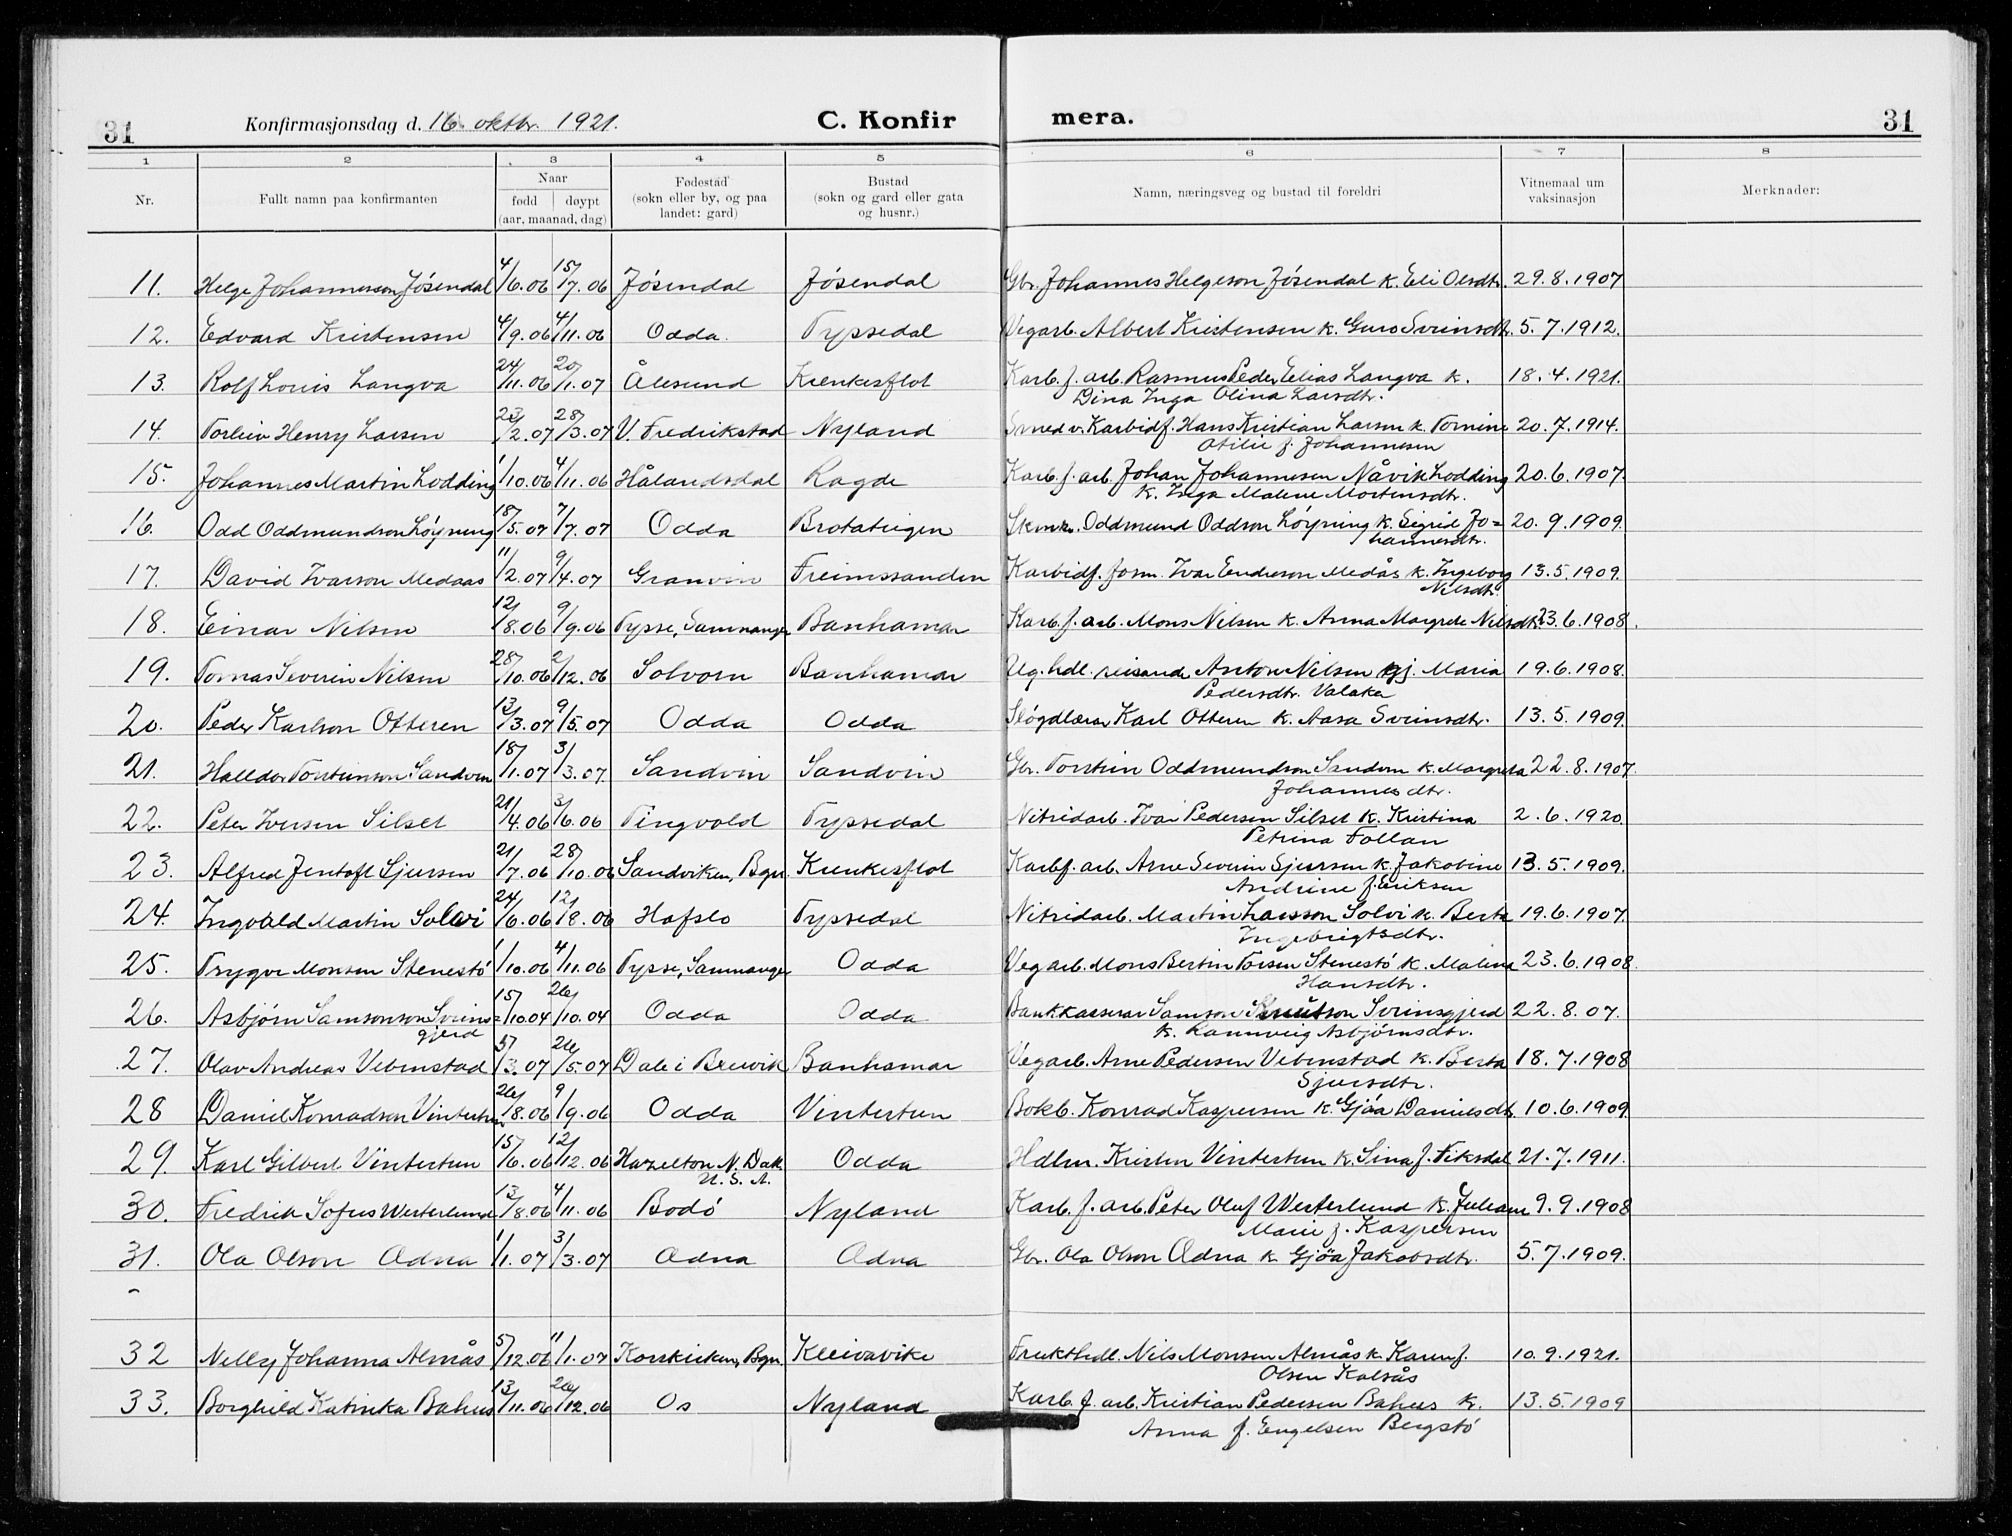 31 Konfirmasjonsdag d. 16. oktbr. 1921. C. Konfirmera. 31
1 2 3 4 5 6 7 8
Nr. Fullt namn paa konfirmanten Naar fødd døypt (aar, maanad, dag) Fødestad (sokn eller by, og paa landet: gard) Bustad (sokn og gard eller gata og husnr.) Namn, næringsveg og bustad til foreldri Vitnemaal um vaksinasjon Merknader:
11. Helge Johannesson Jøsendal 4/6.06 15/7.06 Jøsendal Jøsendal Gbr. Johannes Helgeson Jøsendal k. Eli Olsdtr. 29.8.1907
12. Edvard Kristensen 4/9.06 4/11.06 Odda. Tyssedal Vegarb. Albert Kristensen k. Guro Sveinsdtr. 5.7.1912.
13. Rolf Louis Langva 24/11.06 20/1.07 Ålesund Krenkesflot Karb.f. arb. Rasmus Peder Elias Langva k. 18.4.1921.
Dina Inga Olina Larsdtr.
14. Torleiv Henry Larsen 23/2.07 28/3.07 V. Fredrikstad Nyland Smed v. Karbidf. Hans Kristian Larsen k. Tomine 20.7.1914.
Otilie f. Johannesen
15. Johannes Martin Lodding 1/10.06 4/11.06 Hålandsdal Ragde Karb.f. arb. Johan Johannesen Nåvik Lodding 20.6.1907.
k. Inga Malene Mortensdtr.
16. Odd Oddmundson Løyning 18/5.07 7/7.07 Odda Brotateigen Skmk. Oddmund Oddson Løyning k. Sigrid Jo= 20.9.1909.
hannesdtr.
17. David Ivarson Medaas 11/2.07 9/4.07 Granvin Freimssanden Karbidf. form. Ivar Endreson Medås k. Ingeborg 13.5.1909.
Nilsdtr.
18. Einar Nilsen 12/8.06 9/9.06 Tysse, Samnanger Banhamar Karb.f. arb. Mons Nilsen k. Anna Margrete Nilsdtr. 23.6.1908.
19. Tomas Severin Nilsen 28/10.06 2/12.06 Solvorn Banhamar Ug. hdl. reisande Anton Nilsen gj. Maria 19.6.1908.
Pedersdtr. Valaker
20. Peder Karlson Otteren 13/3.07 9/5.07 Odda Odda Sløgdlærar Karl Otteren k. Aasa Sveinsdtr. 13.5.1909.
21. Halldor Torsteinson Sandven 18/1.07 3/3.07. Sandvin Sandvin Gbr. Torstein Oddmundson Sandven k. Margreta 22.8.1907.
Johannesdtr.
22. Peter Iversen Silset 21/4.06 3/6.06 Tingvold Tyssedal Nitridarb. Ivar Pedersen Silset k. Kristina 2.6.1920.
Petrina Follan
23. Alfred Jentoft Sjursen 21/7.06 28/10.06 Sandviken, Bgn. Krenkesflot Karbf. arb. Arne Severin Sjursen k. Jakobine 13.5.1909.
Andrine f. Eriksen
24. Ingvald Martin Solvi 24/6.06 12/8.06 Hafslo Tyssedal Nitridarb. Martin Larsson Solvi k. Berta 19.6.1907.
Ingebrigtsdtr.
25. Trygve Monsen Stenestø 1/10.06 4/11.06 Tysse, Samnanger Odda Vegarb. Mons Bertin Torsen Stenestø k. Malina 23.6.1908.
Hansdtr.
26. Asbjørn Samsonson Sveins= 15/10.04 26/10.04 Odda Odda Bankkasserar Samson Knutson Sveinsgjerd 22.8.07.
gjerd k. Rannveig Asbjørnsdtr.
27. Olav Andreas Vebenstad 5/3.07 26/5.07 Dale i Bruvik Banhamar Vegarb. Arne Pedersen Vebenstad k. Berta 18.7.1908
Sjursdtr.
28 Daniel Konradson Vintertun 26/8.06 9/9.06 Odda Vintertun Bokb. Konrad Kaspersen k. Gjøa Danielsdt. 10.6.1909.
29. Karl Gilbert Vintertun 15/6.06 12/12.06 Hazelton N. Dak. Odda Hdlm. Kristen Vintertun k. Sina f. Fiksdal 21.7.1911.
U.S.A.
30. Fredrik Sofus Westerlund 13/8.06 4/11.06 Bodø Nyland Karb.f. arb. Peter Oluf Westerlund k. Juliane 9.9.1908
Marie f. Kaspersen
31. Ola Olson Adna 1/1.07 3/3.07 Adna Adna Gbr. Ola Olson Adna k. Gjøa Jakobsdtr. 5.7.1909.
-
32 Nelly Johanna Almås 5/12.06 11/1.07 Korskirken, Bgn. Kleivavike Frukthdl. Nils Monsen Almås k. Karen f. 10.9.1921.
Olsen Kalsås
33. Borghild Katinka Bahus 13/11.06 26/12.06 Os Nyland Karb.f. arb. Kristian Pedersen Bahus k. 13.5.1909
Anna f. Engelsen Bergstø